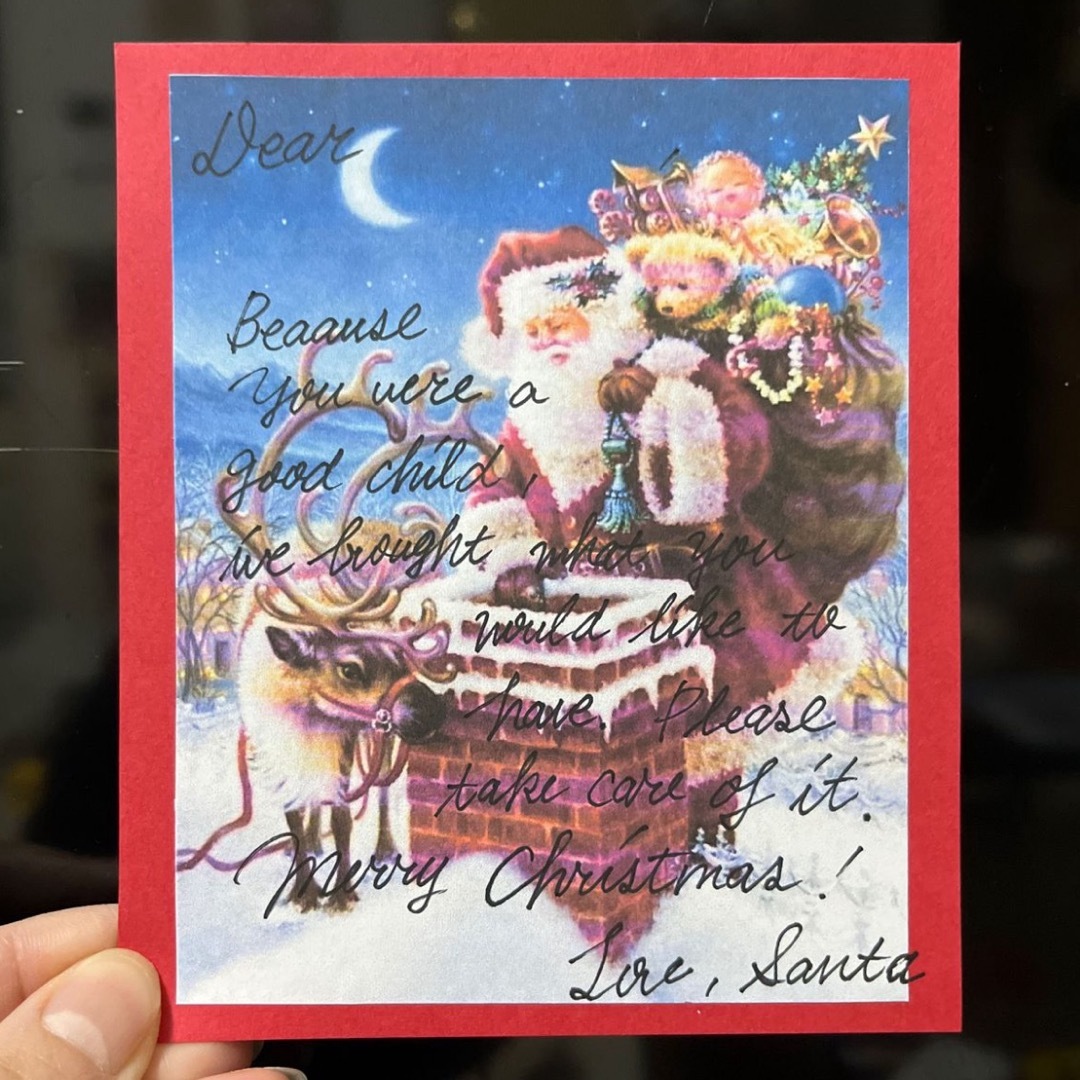 Dear
Beaause
you were a
good child,
i've brought what you
would like to
have. Please
take care of it.
Merry Christmas!
Love, Santa